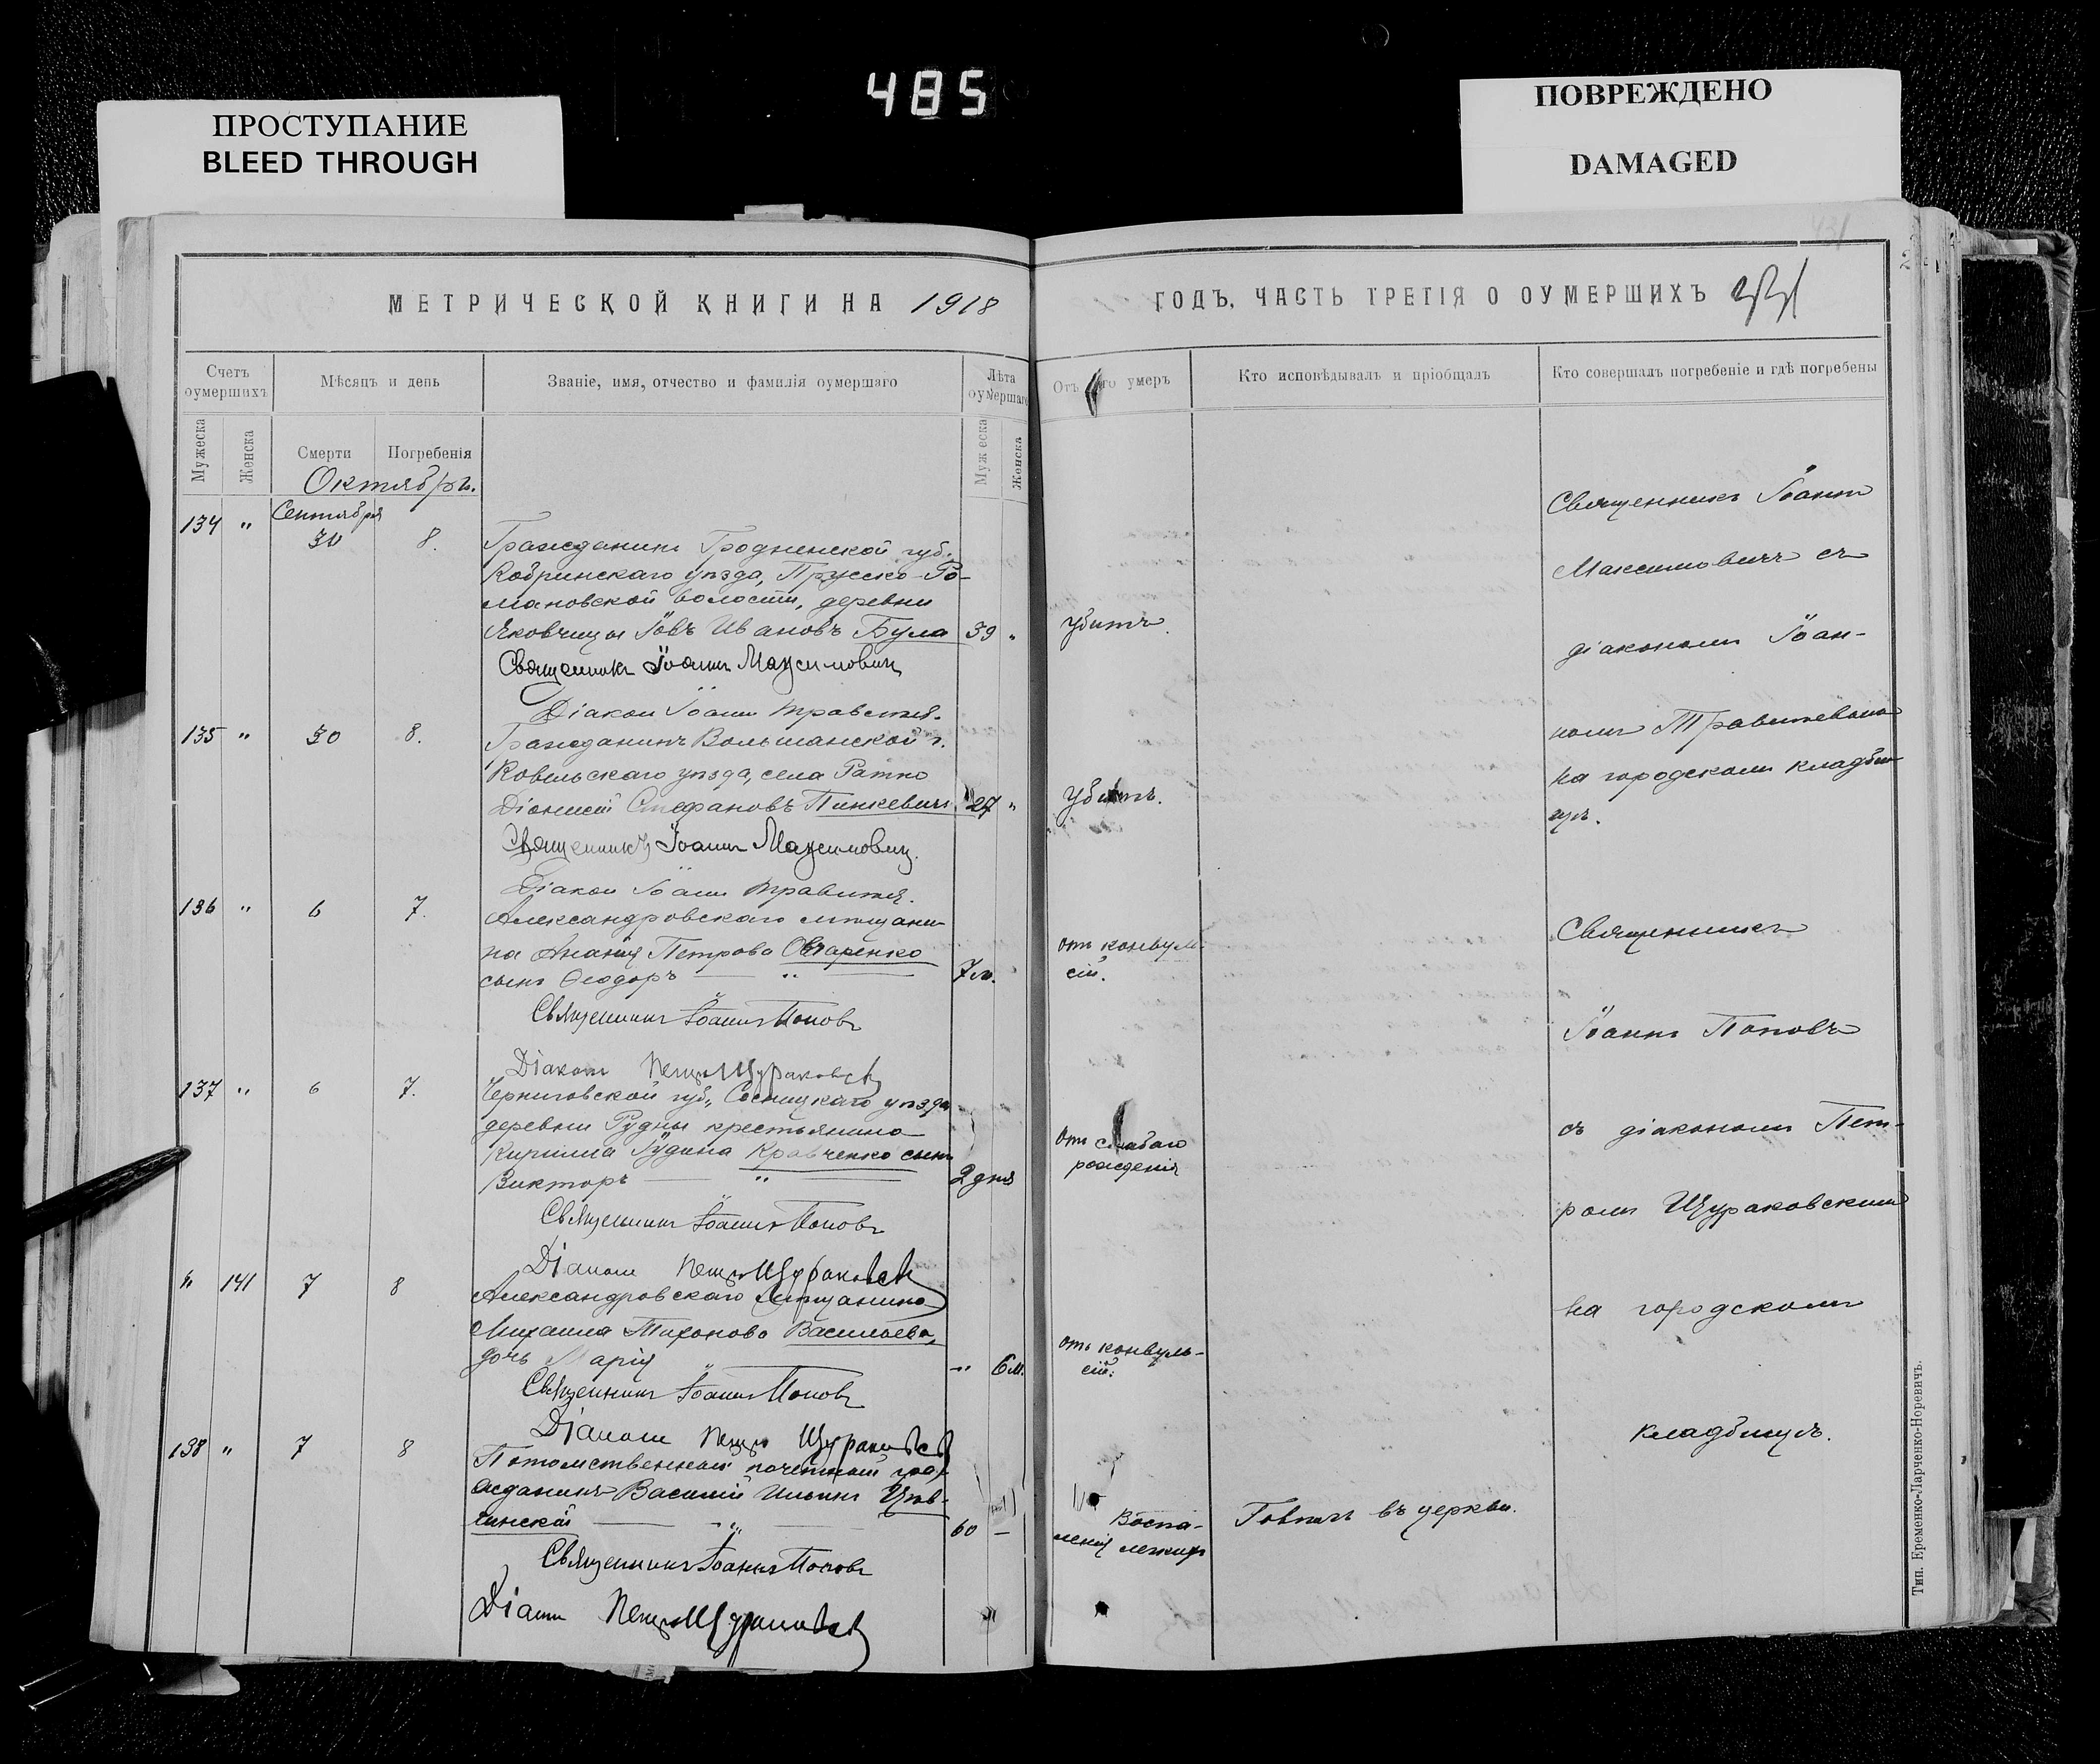 485
ПРОСТУПАНИЕ
BLEED THROUGH
ПОВРЕЖДЕНО
DAMAGED
МЕТРИЧЕСКОЙ КНИГИ НА 1918
Счетъ оумершихъ
Мѣсяцъ и день
Званіе, имя, отчество и фамилія оумершаго
Лѣта оумершаго
Мужеска
Женска
Смерти
Погребенія
Мужеска
Женска
Октябрь.
Сентября
134 " 30 8.
Гражданинъ Гродненской губ.
Кобринскаго уѣзда, Пруско-Ро-
мановской волости, деревни
Яковчицы Іовъ Ивановъ Була 39 "
Священникъ Іоаннъ Максимовичъ
Діаконъ Іоаннъ
135 " 30 8.
Гражданинъ Волынской г.
Ковельскаго уѣзда, села Ратно
Діонисій Стефановъ Пинкевичъ 27 "
Священникъ Іоаннъ Максимовичъ.
Діаконъ Іоаннъ
136 " 6 7.
Александровскаго мѣщани-
на Ананія Петрова Овчаренко
сынъ Ѳеодоръ — " — 7 м.
Священникъ Іоаннъ Поповъ
Діаконъ Петръ Щураковскій
137 " 6 7.
Черниговской губ., Сосницкаго уѣзда
деревни Рудни крестьянина
Кирилла Кравченко сынъ
Викторъ — " — 2 дня
Священникъ Іоаннъ Поповъ
Діаконъ Петръ Щураковскій
" 141 7 8
Александровскаго мѣщанина
Михаила Тихонова Васильева,
дочь Марія " " 6 м.
Священникъ Іоаннъ Поповъ
Діаконъ Петръ Щураковскій
138 " 7 8
Потомственный почетный гра-
жданинъ Василій Ильинъ
— " — 60 —
Священникъ Іоаннъ Поповъ
Діаконъ Петръ Щураковскій
431
ГОДЪ, ЧАСТЬ ТРЕТІЯ О ОУМЕРШИХЪ
Отъ чего умеръ
Кто исповѣдывалъ и пріобщалъ
Кто совершалъ погребеніе и гдѣ погребены
убитъ.
убитъ.
отъ конвуль-
сій.
отъ слабаго
рожденія
отъ конвуль-
сій.
Воспа-
ленія легкихъ
Говѣлъ въ церкви.
Священникъ Іоаннъ
Максимовичъ съ
діакономъ Іоан-
номъ
на городскомъ кладби-
щѣ.
Священникъ
Іоаннъ Поповъ
съ діакономъ Пет-
ромъ Щураковскимъ
на городскомъ
кладбищѣ.
Тип. Еременко-Ларченко-Норевичъ.